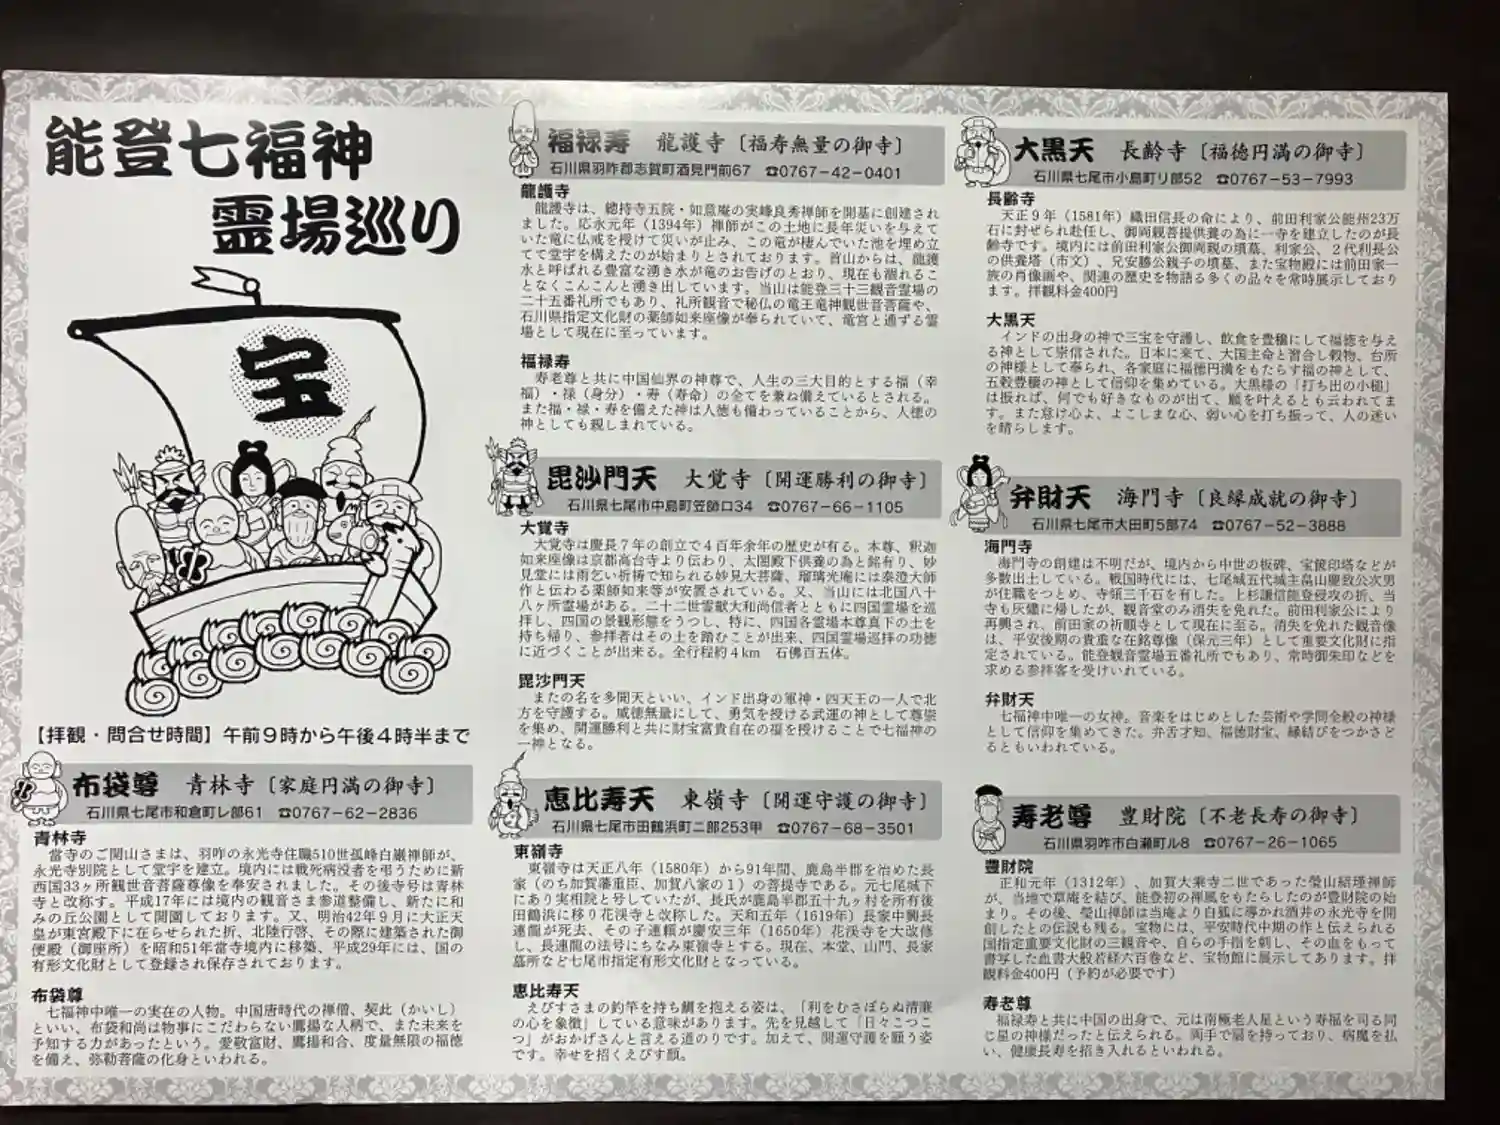 能登七福神
霊場巡り
宝
【拝観・問合せ時間】午前9時から午後4時半まで
布袋尊　青林寺〔家庭円満の御寺〕
石川県七尾市和倉町レ部61　☎0767－62－2836
青林寺
當寺のご開山さまは、羽咋の永光寺住職510世孤峰白巌禅師が、
永光寺別院として堂宇を建立。境内には戦死病没者を弔うために新
西国33ヶ所観世音菩薩尊像を奉安されました。その後寺号は青林
寺と改称す。平成17年には境内の観音さま参道整備し、新たに和
みの丘公園として開園しております。又、明治42年９月に大正天
皇が東宮殿下に在らせられた折、北陸行啓、その際に建築された御
便殿（御座所）を昭和51年當寺境内に移築、平成29年には、国の
有形文化財として登録され保存されております。
布袋尊
七福神中唯一の実在の人物。中国唐時代の禅僧、契此（かいし）
といい、布袋和尚は物事にこだわらない鷹揚な人柄で、また未来を
予知する力があったという。愛敬富財、鷹揚和合、度量無限の福徳
を備え、弥勒菩薩の化身といわれる。
福禄寿　龍護寺〔福寿無量の御寺〕
石川県羽咋郡志賀町酒見門前67　☎0767－42－0401
龍護寺
龍護寺は、總持寺五院・如意庵の実峰良秀禅師を開基に創建され
ました。応永元年（1394年）禅師がこの土地に長年災いを与えて
いた竜に仏戒を授けて災いが止み、この竜が棲んでいた池を埋め立
てて堂宇を構えたのが始まりとされております。首山からは、龍護
水と呼ばれる豊富な湧き水が竜のお告げのとおり、現在も涸れるこ
となくこんこんと湧き出しています。当山は能登三十三観音霊場の
二十五番札所でもあり、札所観音で秘仏の竜王竜神観世音菩薩や、
石川県指定文化財の薬師如来座像が奉られていて、竜宮と通ずる霊
場として現在に至っています。
福禄寿
寿老尊と共に中国仙界の神尊で、人生の三大目的とする福（幸
福）・禄（身分）・寿（寿命）の全てを兼ね備えているとされる。
また福・禄・寿を備えた神は人徳も備わっていることから、人徳の
神としても親しまれている。
毘沙門天　大覚寺〔開運勝利の御寺〕
石川県七尾市中島町笠師ロ34　☎0767－66－1105
大覚寺
大覚寺は慶長７年の創立で４百年余年の歴史が有る。本尊、釈迦
如来座像は京都高台寺より伝わり、太閤殿下供養の為と銘有り、妙
見堂には雨乞い祈祷で知られる妙見大菩薩、瑠璃光庵には泰澄大師
作と伝わる薬師如来等が安置されている。又、当山には北国八十
八ヶ所霊場がある。二十二世霊猷大和尚信者とともに四国霊場を巡
拝し、四国の景観形態をうつし、特に、四国各霊場本尊真下の土を
持ち帰り、参拝者はその土を踏むことが出来、四国霊場巡拝の功徳
に近づくことが出来る。全行程約４km　石佛百五体。
毘沙門天
またの名を多聞天といい、インド出身の軍神・四天王の一人で北
方を守護する。威徳無量にして、勇気を授ける武運の神として尊崇
を集め、開運勝利と共に財宝富貴自在の福を授けることで七福神の
一神となる。
恵比寿天　東嶺寺〔開運守護の御寺〕
石川県七尾市田鶴浜町ニ部253甲　☎0767－68－3501
東嶺寺
東嶺寺は天正八年（1580年）から91年間、鹿島半郡を治めた長
家（のち加賀藩重臣、加賀八家の１）の菩提寺である。元七尾城下
にあり実相院と号していたが、長氏が鹿島半郡五十九ヶ村を所有後
田鶴浜に移り花渓寺と改称した。天和五年（1619年）長家中興長
連龍が死去、その子連頼が慶安三年（1650年）花渓寺を大改修
し、長連龍の法号にちなみ東嶺寺とする。現在、本堂、山門、長家
墓所など七尾市指定有形文化財となっている。
恵比寿天
えびすさまの釣竿を持ち鯛を抱える姿は、「利をむさぼらぬ清廉
の心を象徴」している意味があります。先を見越して「日々こつこ
つ」がおかげさんと言える道のりです。加えて、開運守護を願う姿
です。幸せを招くえびす顔。
大黒天　長齢寺〔福徳円満の御寺〕
石川県七尾市小島町リ部52　☎0767－53－7993
長齢寺
天正９年（1581年）織田信長の命により、前田利家公能州23万
石に封ぜられ赴任し、御両親菩提供養の為に一寺を建立したのが長
齢寺です。境内には前田利家公御両親の墳墓、利家公、２代利長公
の供養塔（市文）、兄安勝公親子の墳墓、また宝物殿には前田家一
族の肖像画や、関連の歴史を物語る多くの品々を常時展示しており
ます。拝観料金400円
大黒天
インドの出身の神で三宝を守護し、飲食を豊穣にして福徳を与え
る神として崇信された。日本に来て、大国主命と習合し穀物、台所
の神様として奉られ、各家庭に福徳円満をもたらす福の神として、
五穀豊穣の神として信仰を集めている。大黒様の「打ち出の小槌」
は振れば、何でも好きなものが出て、願を叶えるとも云われてま
す。また怠け心よ、よこしまな心、弱い心を打ち振って、人の迷い
を晴らします。
弁財天　海門寺〔良縁成就の御寺〕
石川県七尾市大田町5部74　☎0767－52－3888
海門寺
海門寺の創建は不明だが、境内から中世の板碑、宝篋印塔などが
多数出土している。戦国時代には、七尾城五代城主畠山慶致公次男
が住職をつとめ、寺領三千石を有した。上杉謙信能登侵攻の折、当
寺も灰燼に帰したが、観音堂のみ消失を免れた。前田利家公により
再興され、前田家の祈願寺として現在に至る。消失を免れた観音像
は、平安後期の貴重な在銘尊像（保元三年）として重要文化財に指
定されている。能登観音霊場五番札所でもあり、常時御朱印などを
求める参拝客を受けいれている。
弁財天
七福神中唯一の女神。音楽をはじめとした芸術や学問全般の神様
として信仰を集めてきた。弁舌才知、福徳財宝、縁結びをつかさど
るともいわれている。
寿老尊　豊財院〔不老長寿の御寺〕
石川県羽咋市白瀬町ル8　☎0767－26－1065
豊財院
正和元年（1312年）、加賀大乗寺二世であった瑩山紹瑾禅師
が、当地で草庵を結び、能登初の禅風をもたらしたのが豊財院の始
まり。その後、瑩山禅師は当庵より白狐に導かれ酒井の永光寺を開
創したとの伝説も残る。宝物には、平安時代中期の作と伝えられる
国指定重要文化財の三観音や、自らの手指を刺し、その血をもって
書写した血書大般若経六百巻など、宝物館に展示してあります。拝
観料金400円（予約が必要です）
寿老尊
福禄寿と共に中国の出身で、元は南極老人星という寿福を司る同
じ星の神様だったと伝えられる。両手で扇を持っており、病魔を払
い、健康長寿を招き入れるといわれる。